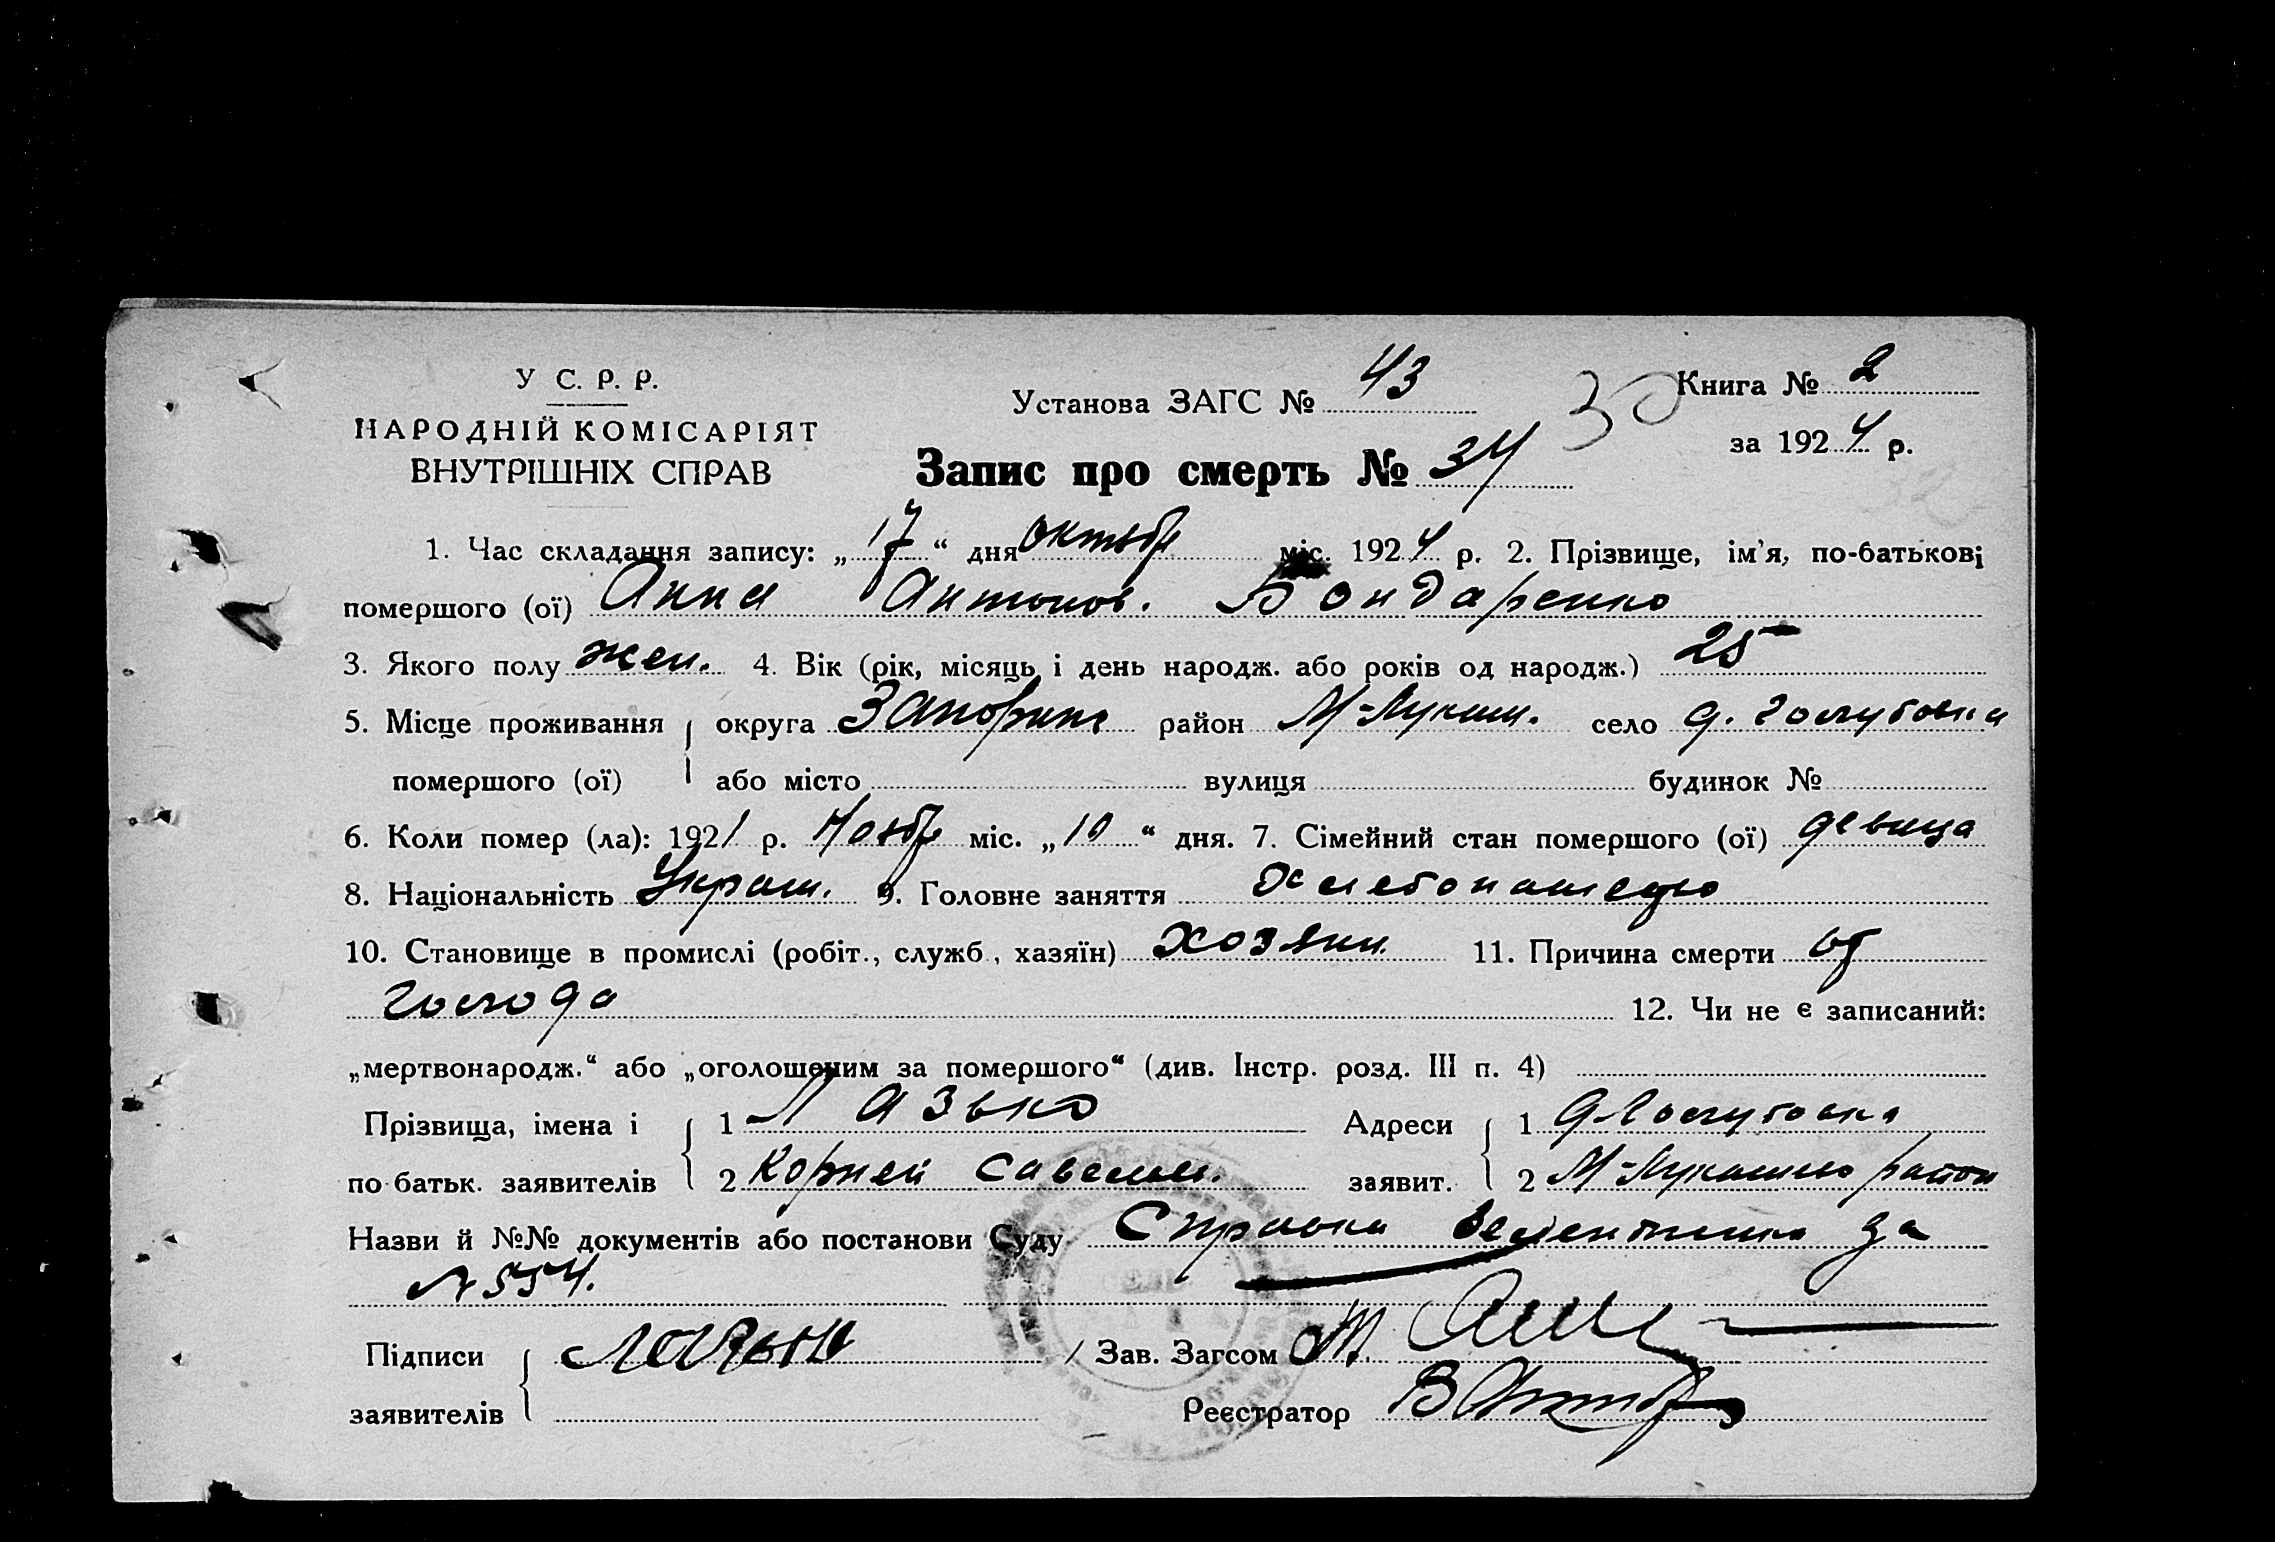 У С. Р. Р.
НАРОДНІЙ КОМІСАРІЯТ
ВНУТРІШНІХ СПРАВ
Установа ЗАГС № 43
30
Книга № 2
за 1924 р.
Запис про смерть № 34
1. Час складання запису: „17“ дня октябр міс. 1924 р. 2. Прізвище, ім'я, по-батькові
помершого (ої) Анна Антонов. Бондаренко
3. Якого полу жен. 4. Вік (рік, місяць і день народж. або років од народж.) 25
5. Місце проживання помершого (ої) округа Запориж район М-Лукаш. село д. Голубовка
або місто вулиця будинок №
6. Коли помер (ла): 1921 р. Ноябр міс. „10“ дня. 7. Сімейний стан помершого (ої) девица
8. Національність Украин. 9. Головне заняття Хлебопашедво
10. Становище в промислі (робіт., служб., хазяїн) хозяин. 11. Причина смерти от
голода 12. Чи не є записаний:
„мертвонародж.“ або „оголошеним за помершого“ (див. Інстр. розд. III п. 4)
Прізвища, імена і по батьк. заявителів 1 Лазько Адреси заявит. 1 д Голубовка
2 Корней Савельи. 2 М-Лукашево район
Назви й №№ документів або постанови Суду Справка за
№ 554.
Підписи заявителів Лазько Зав. Загсом
Реєстратор